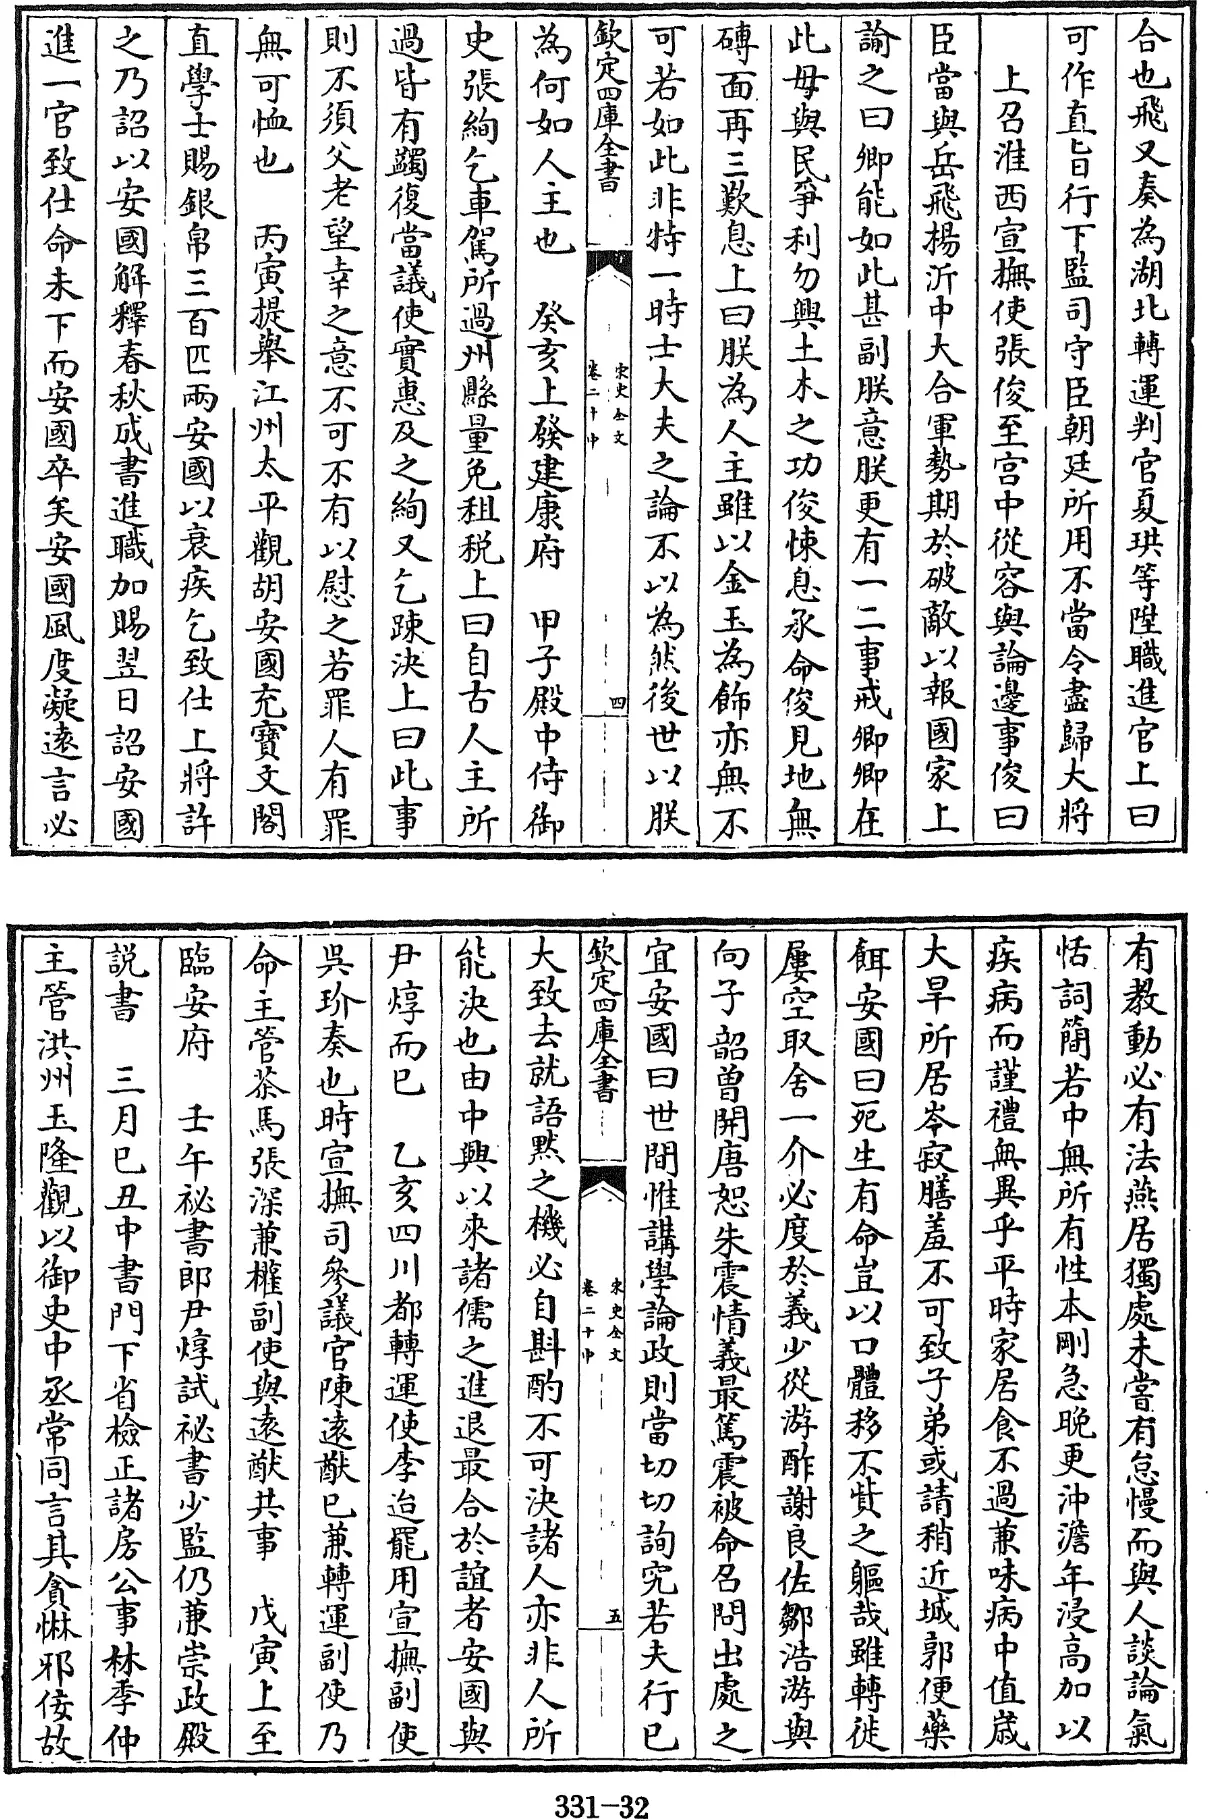 合也飛又奏為湖北轉運判官夏珙等陞職進官上曰
可作直旨行下監司守臣朝廷所用不當令盡歸大將
上召淮西宣撫使張俊至宫中從容與論邊事俊曰
臣當與岳飛揚沂中大合軍勢期於破敵以報國家上
諭之曰卿能如此甚副朕意朕更有一二事戒卿卿在
此毋與民爭利勿興土木之功俊悚息承命俊見地無
磚面再三歎息上曰朕為人主雖以金玉為飾亦無不
可若如此非特一時士大夫之論不以為然後世以朕
欽定四庫全書
宋史全文
卷二十中
四
為何如人主也 癸亥上發建康府 甲子殿中侍御
史張絢乞車駕所過州縣量免租税上曰自古人主所
過皆有蠲復當議使實惠及之絢又乞踈決上曰此事
則不須父老望幸之意不可不有以慰之若罪人有罪
無可恤也 丙寅提舉江州太平觀胡安國充寶文閣
直學士賜銀帛三百匹兩安國以衰疾乞致仕上將許
之乃詔以安國解釋春秋成書進職加賜翌日詔安國
進一官致仕命未下而安國卒矣安國風度凝逺言必
有教動必有法燕居獨處未嘗有怠慢而與人談論氣
恬詞簡若中無所有性本剛急晚更沖澹年浸高加以
疾病而謹禮無異乎平時家居食不過兼味病中值歲
大旱所居岑寂膳羞不可致子弟或請稍近城郭便藥
餌安國曰死生有命豈以口體移不貲之軀哉雖轉徙
屢空取舍一介必度於義少從游酢謝良佐鄒浩游與
向子韶曾開唐恕朱震情義最篤震被命召問出處之
宜安國曰世間惟講學論政則當切切詢究若夫行已
欽定四庫全書
宋史全文
卷二十中
五
大致去就語黙之機必自斟酌不可決諸人亦非人所
能決也由中興以來諸儒之進退最合於誼者安國與
尹焞而已 乙亥四川都轉運使李迨罷用宣撫副使
吳玠奏也時宣撫司參議官陳逺猷已兼轉運副使乃
命主管茶馬張深兼權副使與逺猷共事 戊寅上至
臨安府 壬午祕書郎尹焞試祕書少監仍兼崇政殿
説書 三月己丑中書門下省檢正諸房公事林季仲
主管洪州玉隆觀以御史中丞常同言其貪惏邪佞故
331-32